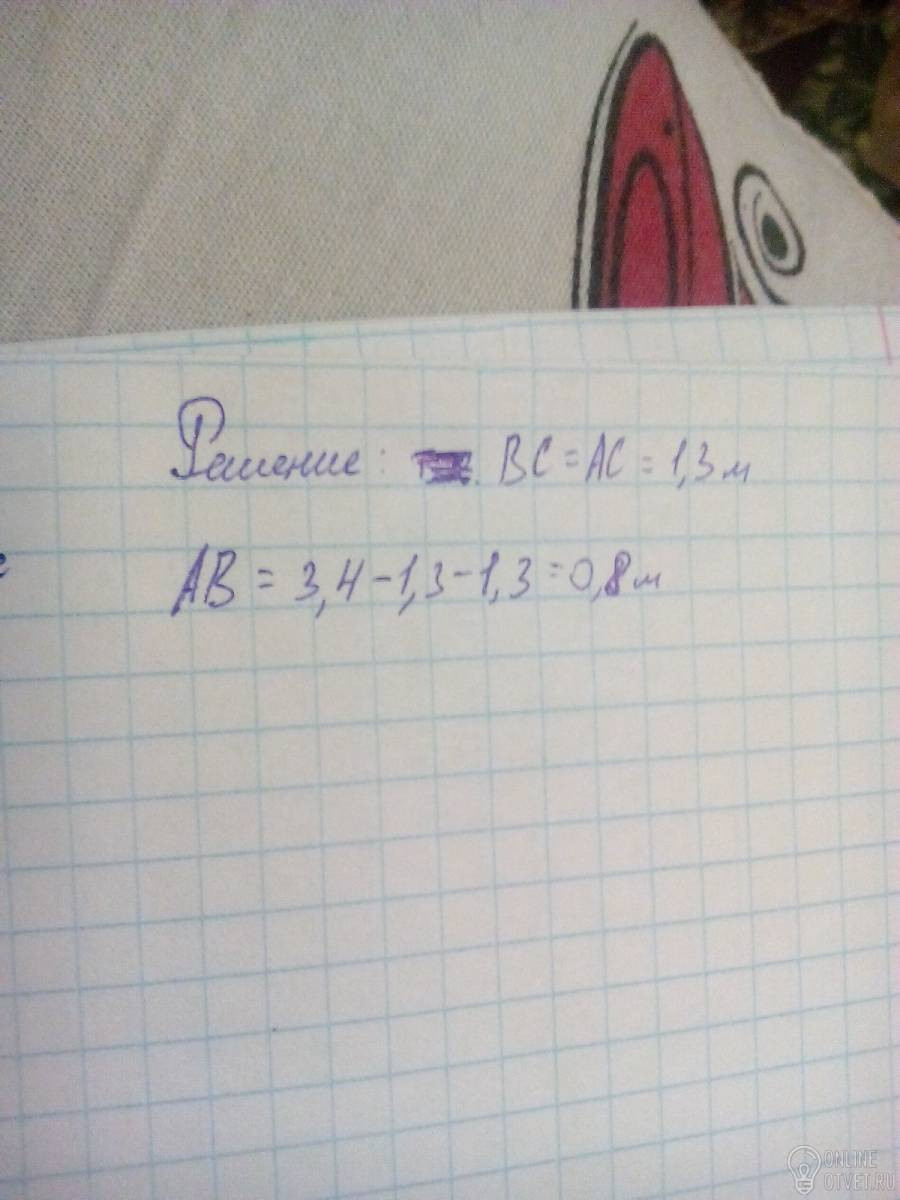 Решение: BC = AC = 1,3 м
AB = 3,4 - 1,3 - 1,3 = 0,8 м
ONLINE
OTVET.RU